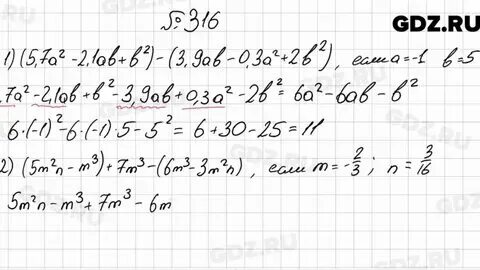 № 316
GDZ.RU
1) (5,7a² - 2,1ab + b²) - (3,9ab - 0,3a² + 2b²), если a = -1 b = 5
,7a² - 2,1ab + b² - 3,9ab + 0,3a² - 2b² = 6a² - 6ab - b²
6·(-1)² - 6·(-1)·5 - 5² = 6 + 30 - 25 = 11
2) (5m²n - m³) + 7m³ - (6m³ - 3m²n), если m = -2/3; n = 3/16
5m²n - m³ + 7m³ - 6m
GDZ.RU